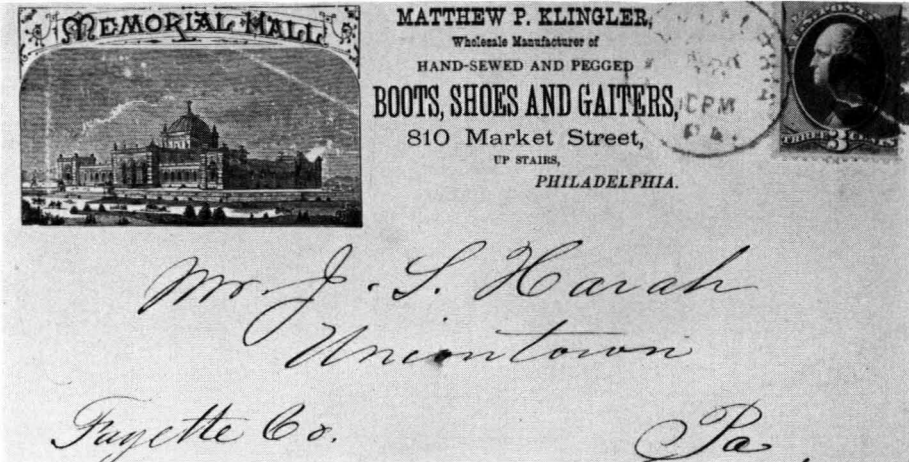 MEMORIAL HALL
MATTHEW P. KLINGLER,
Wholesale Manufacturer of
HAND-SEWED AND PEGGED
BOOTS, SHOES AND GAITERS,
810 Market Street,
UP STAIRS,
PHILADELPHIA.
PM
PA.
U.S. POSTAGE
THREE 3 CENTS
Mr. J. S. Harah
Uniontown
Fayette Co.
Pa.